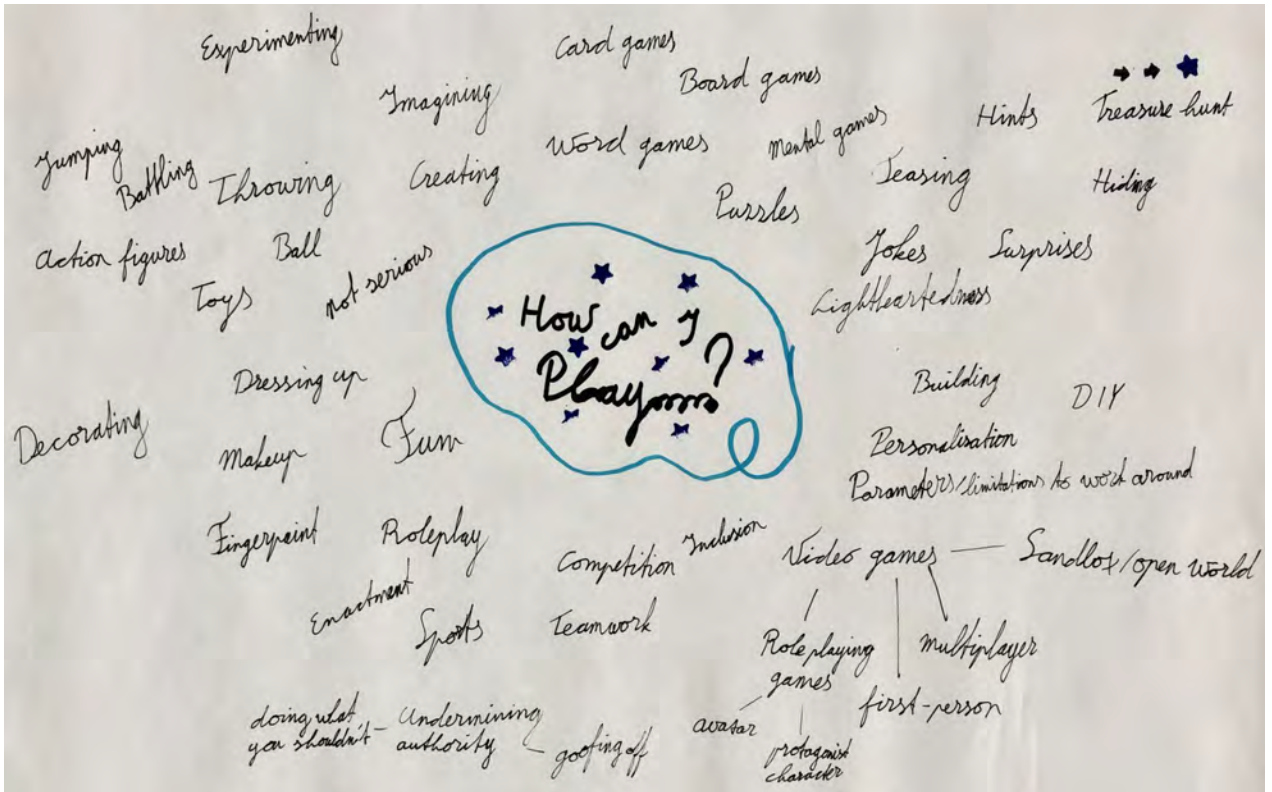 Experimenting
Card games
Board games
Imagining
Hints
Treasure hunt
Jumping
Battling
Throwing
Creating
Word games
Mental games
Teasing
Hiding
Puzzles
Action figures
Ball
Toys
not serious
Jokes
Surprises
Lightheartedness
How can I
Play
?
Dressing up
Decorating
Makeup
Fun
Building
DIY
Personalisation
Parameters/limitations to work around
Fingerpaint
Roleplay
Enactment
Sports
Competition
Inclusion
Teamwork
Video games
Sandbox/open world
Roleplaying
games
multiplayer
first-person
avatar
protagonist
character
doing what
you shouldn't
Undermining
authority
goofing off